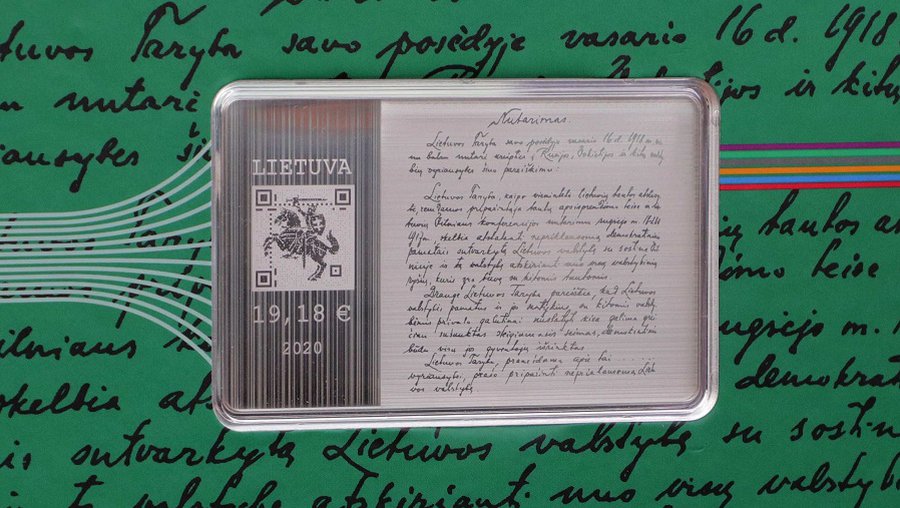 tuvos Taryba savo posėdyje vasario 16 d. 1918
nutarė
LIETUVA
19,18 €
2020
Nutarimas.
Lietuvos Taryba savo posėdyje vasario 16 d. 1918 m.
nutarė kreiptis į Rusijos, Vokietijos ir kitų
vyriausybes šiuo pareiškimu:
Lietuvos Taryba, kaip vienintelė lietuvių tautos
remdamos pripažintąja tautų apsisprendimo teise ir
Vilniaus konferencijos nutarimu rugsėjo m. 18-23
skelbia atstatant nepriklausomą demokratiniais
pamatais sutvarkytą Lietuvos valstybę su sostine
Vilniuje ir tą valstybę atskirianti nuo visų valstybinių
ryšių, kurie yra buvę su kitomis tautomis.
Drauge Lietuvos Taryba pareiškia, kad Lietuvos
valstybės pamatus ir jos santykius su kitomis
privalo galutinai nustatyti kiek galima
sušauktas steigiamasis seimas, demokratiniu
būdu visų jos gyventojų išrinktas.
Lietuvos Taryba, pranešdama apie tai ......
vyriausybei, prašo pripažinti nepriklausomą Liet
vos valstybę.
ir kitų
tautos
teise
Vilniaus
rugsėjo m.
skelbia
demokrat
sutvarkytą Lietuvos valstybę su sostin
ir tą valstybę atskirianti nuo visų valstyb